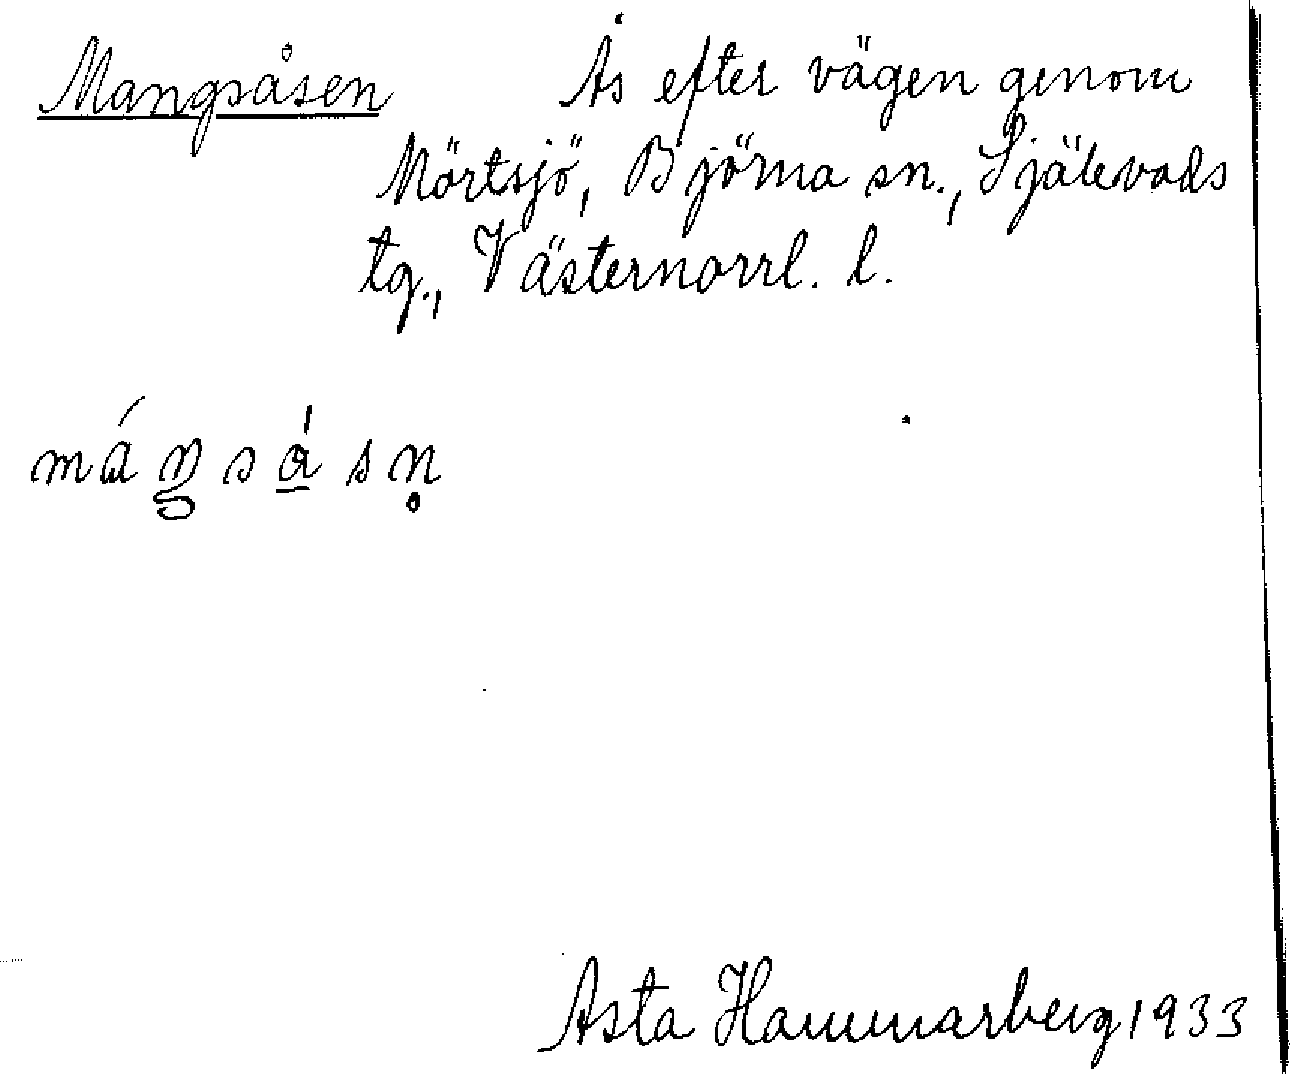 Mangsåsen Ås efter vägen genom
Mörtsjö, Björna sn., Själevads
tg., Västernorrl. l.
máŋsá̱sn̥
Asta Hammarberg 1933